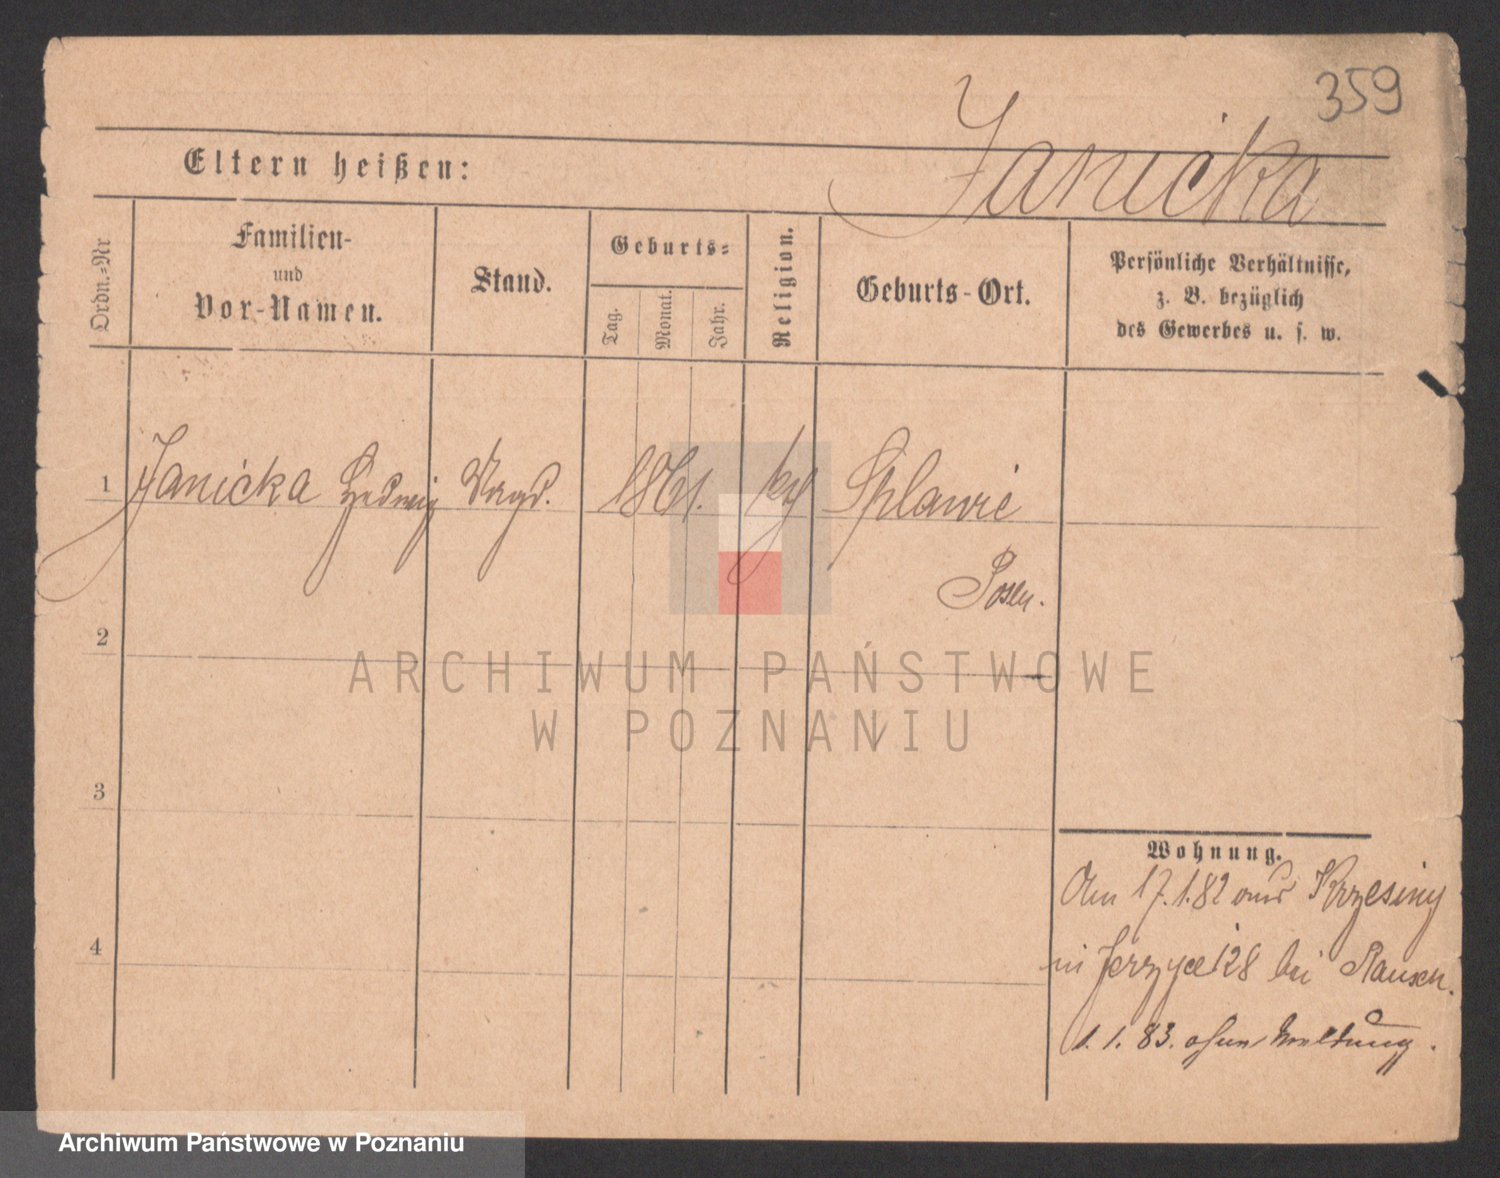 359
Janicka
Eltern heißen:
Ordn.=Nr
Familien-
und
Vor-Namen.
Stand.
Geburts=
Tag.
Monat.
Jahr.
Religion.
Geburts-Ort.
Persönliche Verhältnisse,
z. B. bezüglich
des Gewerbes u. s. w.
1 Janicka Hedwig 1861. Splawie
Posen.
2
3
4
Wohnung.
Am 17.1.82 aus Krzesiny
in Jerzyce 128 bei
1. 1. 83. ohne Meldung.
ARCHIWUM PAŃSTWOWE
W POZNANIU
Archiwum Państwowe w Poznaniu